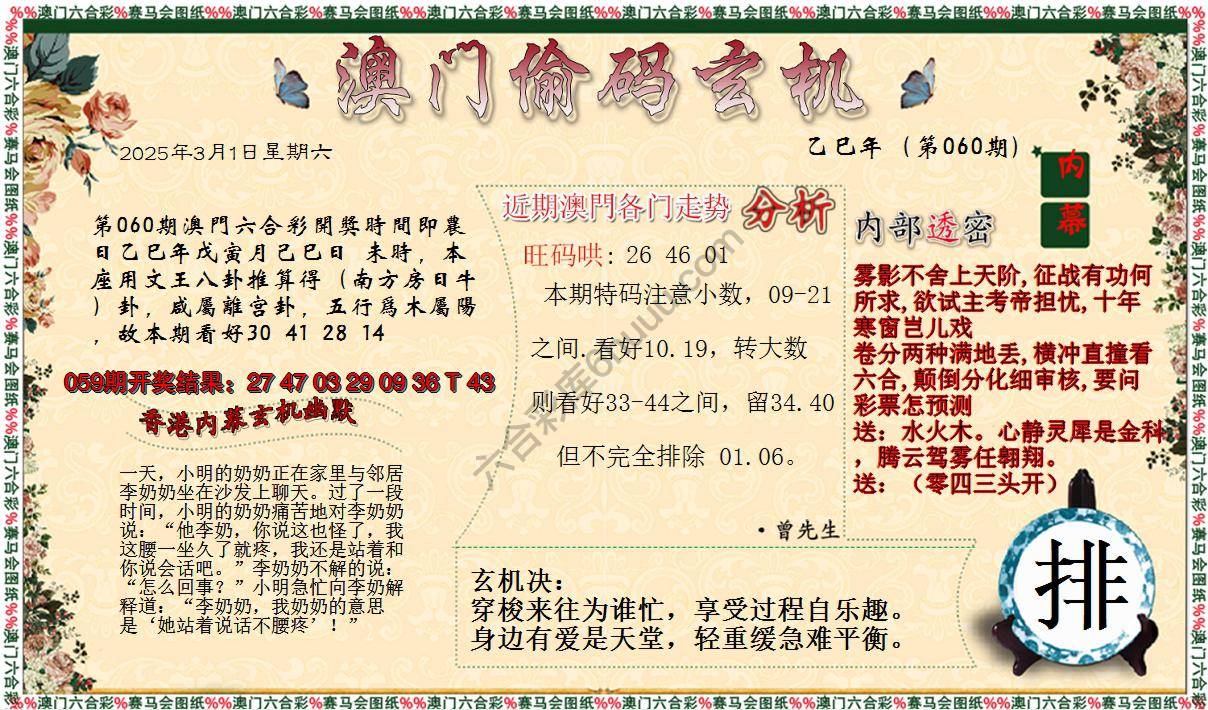 %%澳门六合彩%赛马会图纸%%澳门六合彩%赛马会图纸%%澳门六合彩%赛马会图纸%%澳门六合彩%赛马会图纸%%澳门六合彩%赛马会图纸%%澳门六合彩%赛马会图纸%%
澳门偷码玄机
2025年3月1日星期六
乙巳年（第060期）
内幕
第060期澳門六合彩開獎時間即農
日乙巳年戊寅月己巳日 未時，本
座用文王八卦推算得（南方房日牛
）卦，咸屬離宫卦，五行爲木屬陽
，故本期看好30 41 28 14
059期开奖结果：27 47 03 29 09 36 T 43
香港内幕玄机幽默
一天，小明的奶奶正在家里与邻居
李奶奶坐在沙发上聊天。过了一段
时间，小明的奶奶痛苦地对李奶奶
说：“他李奶，你说这也怪了，我
这腰一坐久了就疼，我还是站着和
你说会话吧。”李奶奶不解的说：
“怎么回事？”小明急忙向李奶解
释道：“李奶奶，我奶奶的意思
是‘她站着说话不腰疼’！”
近期澳門各门走势 分析
旺码哄: 26 46 01
本期特码注意小数，09-21
之间.看好10.19，转大数
则看好33-44之间，留34.40
但不完全排除 01.06。
·曾先生
内部透密
雾影不舍上天阶,征战有功何
所求,欲试主考帝担忧,十年
寒窗岂儿戏
卷分两种满地丢,横冲直撞看
六合,颠倒分化细审核,要问
彩票怎预测
送：水火木。心静灵犀是金科
，腾云驾雾任翱翔。
送：（零四三头开）
玄机决：
穿梭来往为谁忙，享受过程自乐趣。
身边有爱是天堂，轻重缓急难平衡。
排
%%澳门六合彩%赛马会图纸%%澳门六合彩%赛马会图纸%%澳门六合彩%赛马会图纸%%澳门六合彩%赛马会图纸%%澳门六合彩%赛马会图纸%%澳门六合彩%赛马会图纸%%